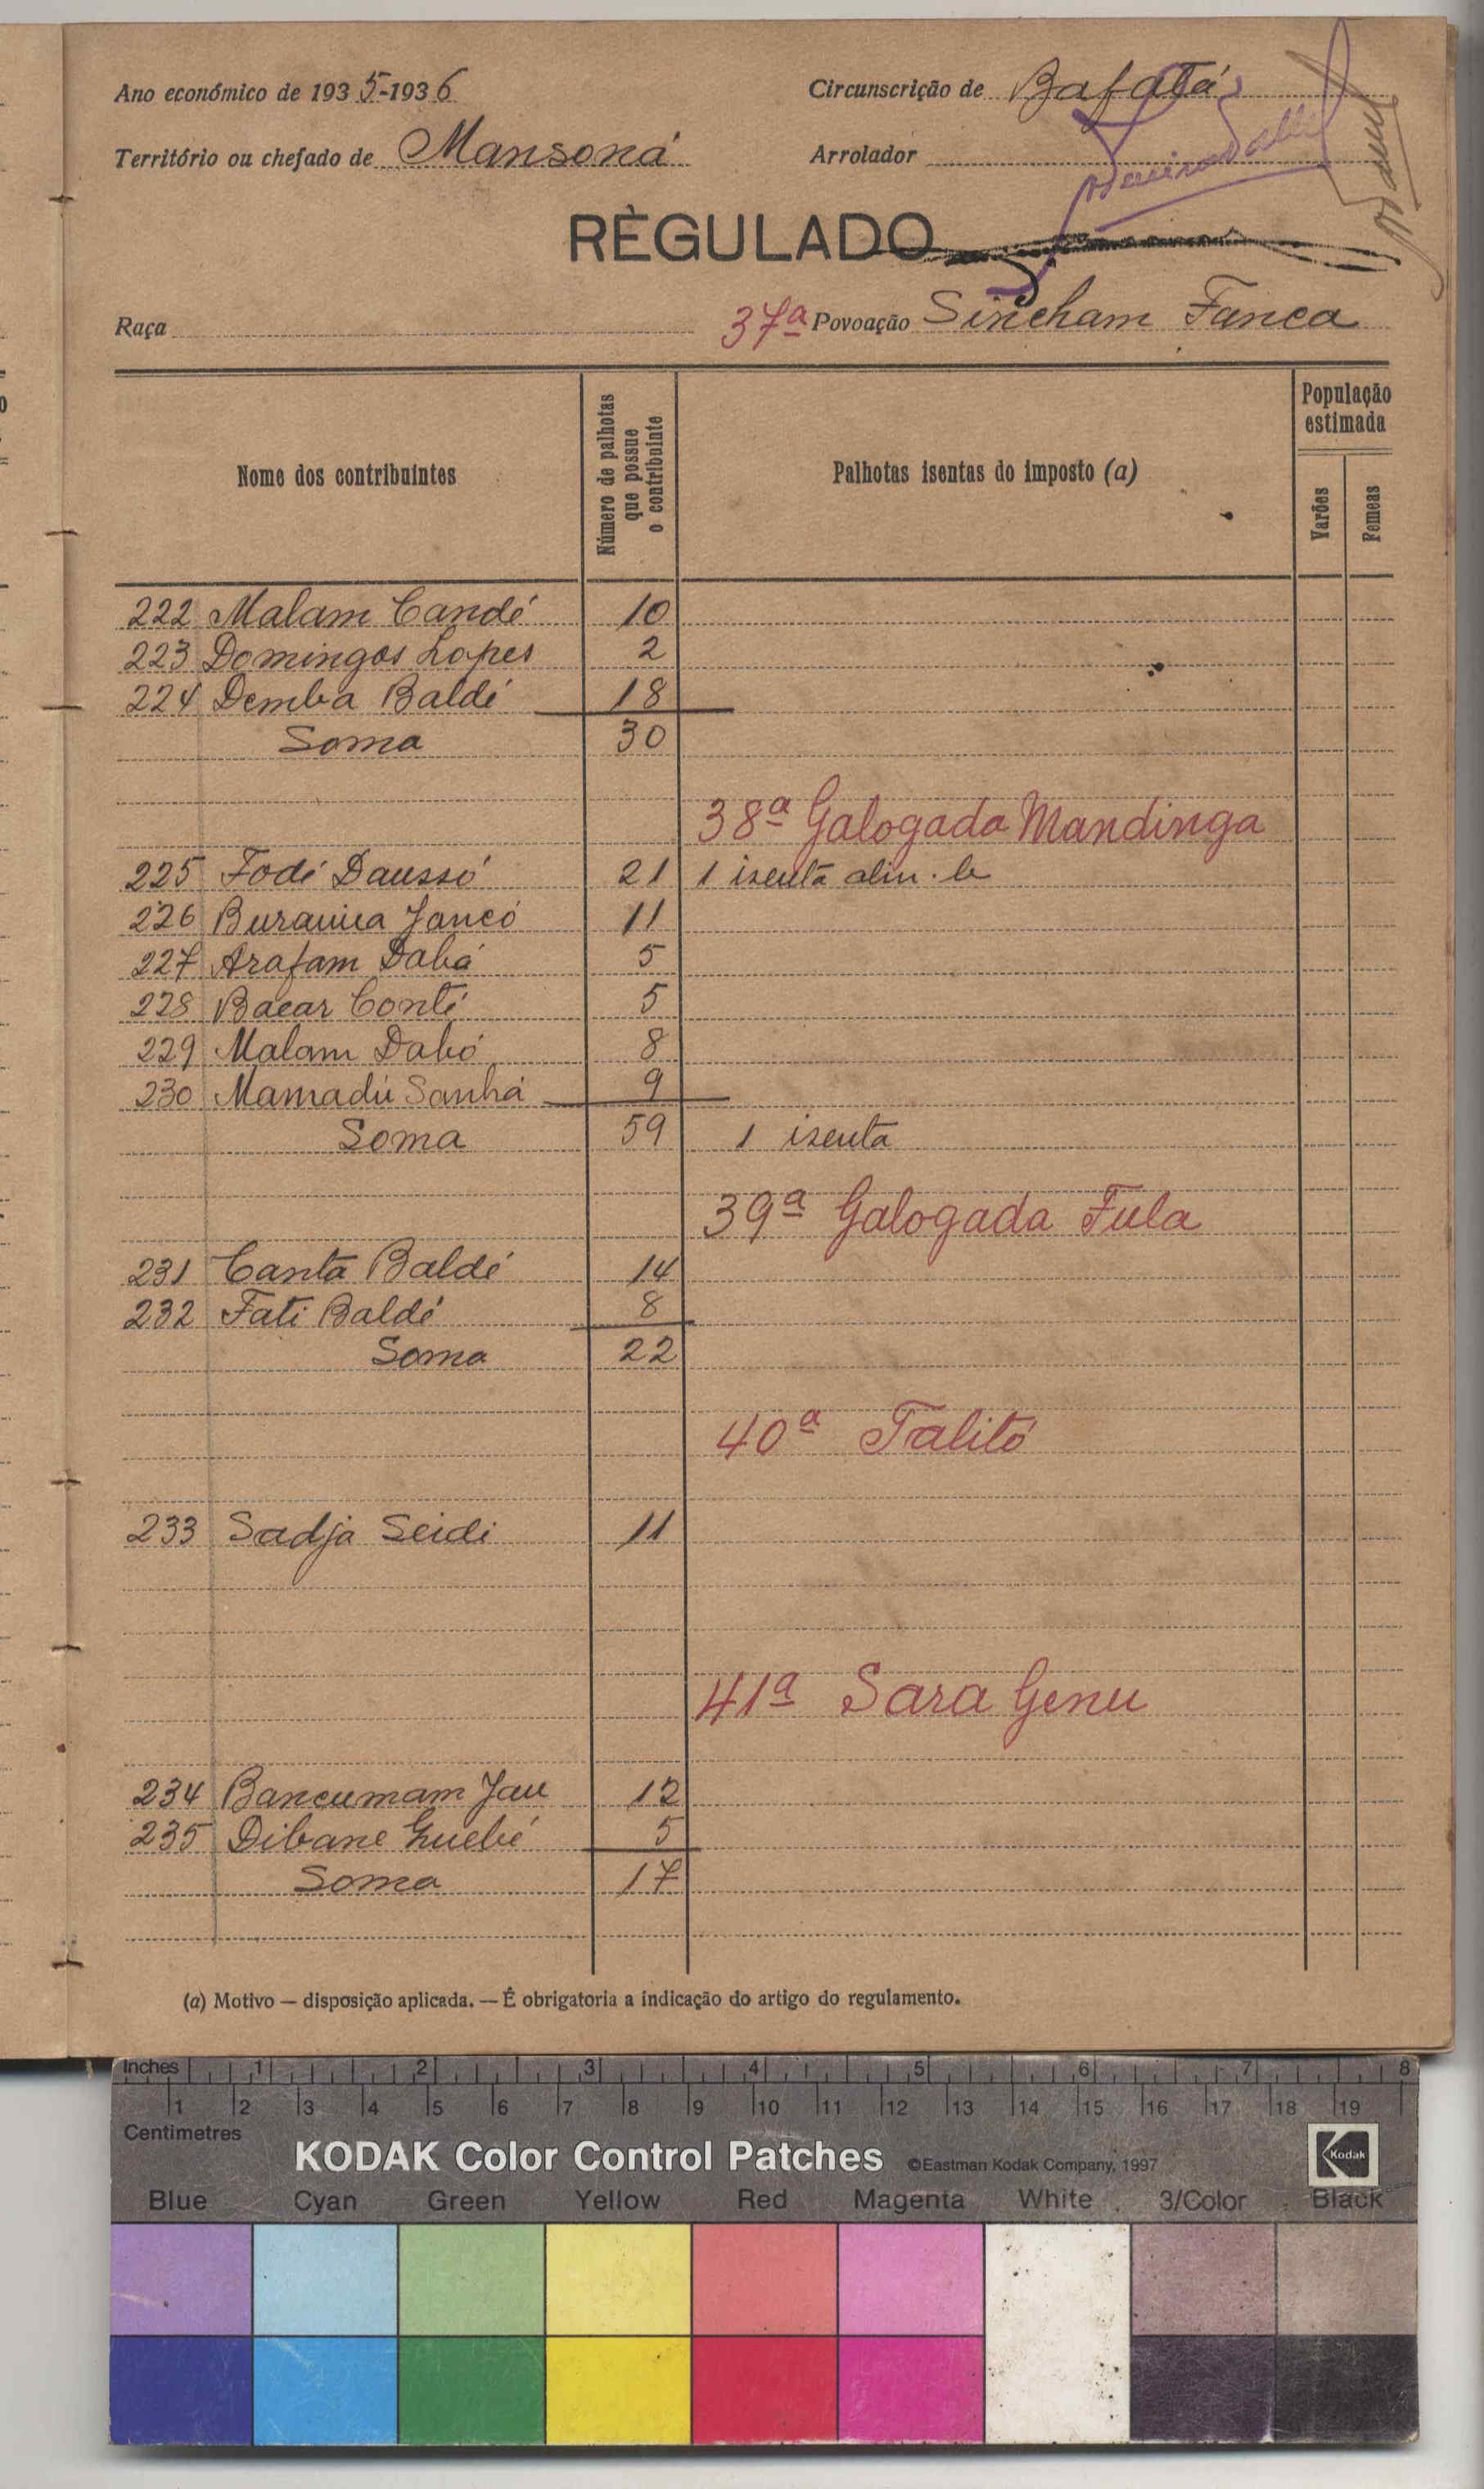 Ano económico de 1935-1936
Circunscrição de Bafatá
Território ou chefado de Mansoná
Arrolador
RÈGULADO
Raça
37ª Povoação Sincham Fanca
Nome dos contribuintes
Número de palhotas que possue o contribuinte
Palhotas isentas do imposto (a)
População estimada
Varões
Femeas
222 Malam Candé 10
223 Domingos Lopes 2
224 Demba Baldé 18
Soma 30
38ª Galogada Mandinga
225 Fodé Daussó 21 1 isenta alin. b
226 Buraima Jancó 11
227 Arafam Dabá 5
228 Bacar Conté 5
229 Malam Dabó 8
230 Mamadú Sanhá 9
Soma 59 1 isenta
39ª Galogada Fula
231 Canta Baldé 14
232 Fati Baldé 8
Soma 22
40ª Talitó
233 Sadja Seidi 11
41ª Sara Genu
234 Bancumam Jau 12
235 Dibane Guebé 5
Soma 17
(a) Motivo — disposição aplicada. — É obrigatoria a indicação do artigo do regulamento.
Inches 1 2 3 4 5 6 7 8
1 2 3 4 5 6 7 8 9 10 11 12 13 14 15 16 17 18 19
Centimetres
KODAK Color Control Patches ©Eastman Kodak Company, 1997 Kodak
Blue Cyan Green Yellow Red Magenta White 3/Color Black